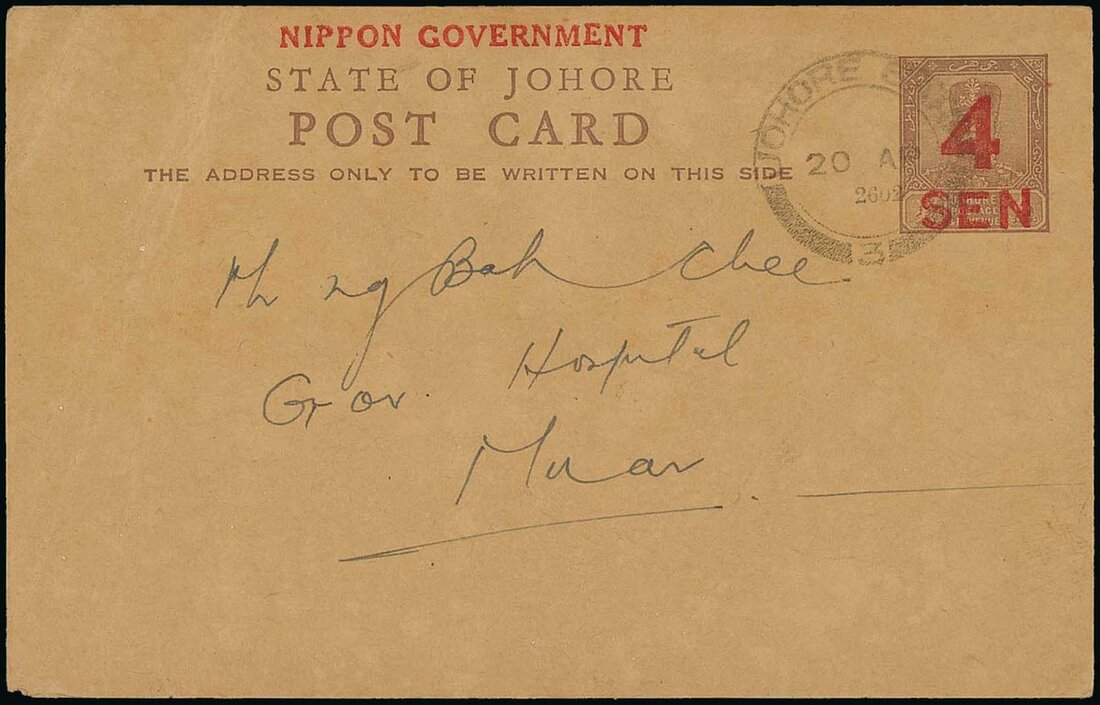 NIPPON GOVERNMENT
STATE OF JOHORE
POST CARD
THE ADDRESS ONLY TO BE WRITTEN ON THIS SIDE
JOHORE B
20 AP
3
4
SEN
JOHORE
POSTAGE
REVENUE
Ng Bah Chee.
Gov. Hospital
Muar